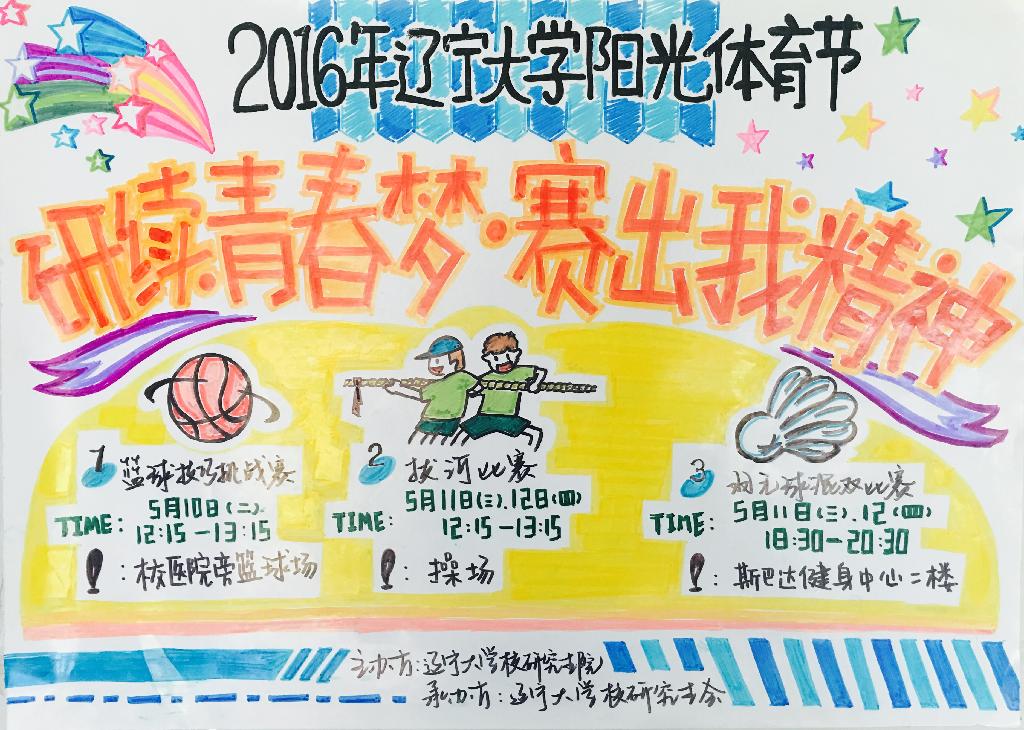 2016年辽宁大学阳光体育节
研续青春梦·赛出我精神
1 篮球技巧挑战赛
TIME: 5月10日(二).
12:15-13:15
! : 校医院旁篮球场
2 拔河比赛
TIME: 5月11日(三).12日(四)
12:15-13:15
! : 操场
3 羽毛球混双比赛
TIME: 5月11日(三).12(四)
18:30-20:30
! : 斯巴达健身中心二楼
主办方:辽宁大学校研究生院
承办方:辽宁大学校研究生会